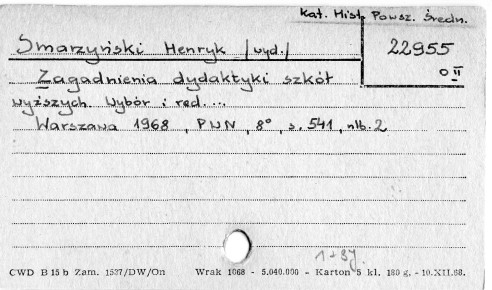 Kat. Hist. Powsz. Średn.
Smarzyński Henryk /wyd./
22955
O II
Zagadnienia dydaktyki szkół
wyższych. Wybór i red....
Warszawa 1968, PWN, 8°, s. 541, nlb. 2
CWD B 15 b Zam. 1527/DW/On Wrak 1068 - 5.040.000 - Karton 5 kl. 180 g. - 10.XII.68.